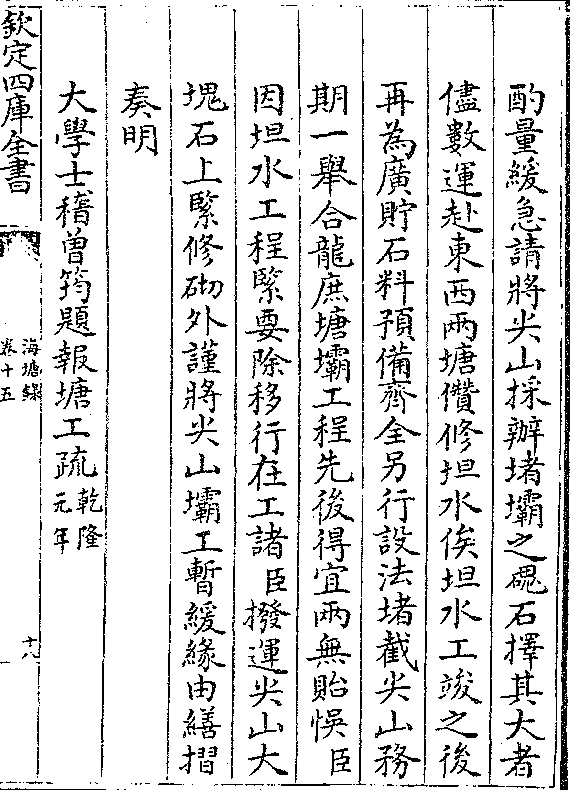 酌量緩急請將尖山採辦堵壩之磈石擇其大者
儘數運赴東西兩塘儹修坦水俟坦水工竣之後
再為廣貯石料預備齊全另行設法堵截尖山務
期一舉合龍庶塘壩工程先後得宜兩無貽悞臣
因坦水工程緊要除移行在工諸臣撥運尖山大
塊石上緊修砌外謹將尖山壩工暫緩緣由繕摺
奏明
大學士嵇曾筠題報塘工疏乾隆元年
欽定四庫全書
海塘錄
卷十五
十八